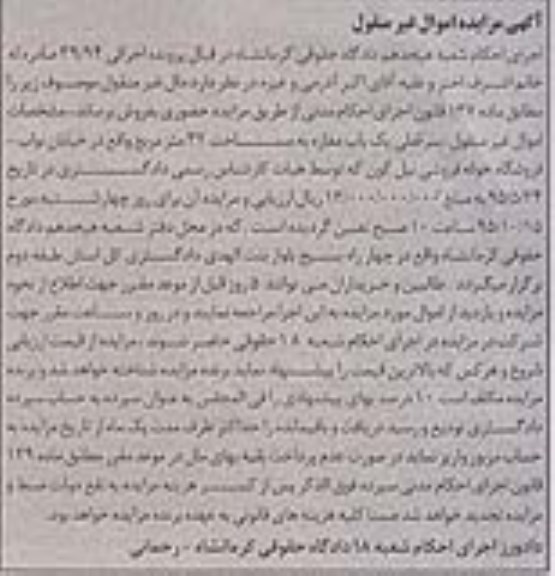 آگهی مزایده اموال غیر منقول
اجرای احکام شعبه هیجدهم دادگاه حقوقی کرمانشاه در قبال پرونده اجرائی ۲۹/۹۴ صادره له
خانم اشرف امیر و علیه آقای اکبر آذرمی و غیره در نظر دارد مال غیر منقول موصوف زیر را
مطابق ماده ۱۳۷ قانون اجرای احکام مدنی از طریق مزایده حضوری بفروش برساند. مشخصات
اموال غیر منقول: سرقفلی یک باب مغازه به مساحت ۳۲ متر مربع واقع در خیابان نواب -
فروشگاه حوله فروشی نیل گون که توسط هیات کارشناس رسمی دادگستری در تاریخ
۹۵/۵/۲۴ به مبلغ ریال ارزیابی و مزایده آن برای روز چهارشنبه مورخ
۹۵/۱۰/۱۵ ساعت ۱۰ صبح تعیین گردیده است. که در محل دفتر شعبه هیجدهم دادگاه
حقوقی کرمانشاه واقع در چهار راه بسیج بلوار بنت الهدی دادگستری کل استان طبقه دوم
برگزار میگردد. طالبین و خریداران می توانند ۵ روز قبل از موعد مقرر جهت اطلاع از نحوه
مزایده و بازدید از اموال مورد مزایده به این اجرا مراجعه نمایند و در روز و ساعت مقرر جهت
شرکت در مزایده در اجرای احکام شعبه ۱۸ حقوقی حاضر شوند. مزایده از قیمت ارزیابی
شروع و هرکس که بالاترین قیمت را پیشنهاد نماید برنده مزایده شناخته خواهد شد و برنده
مزایده مکلف است ۱۰ درصد بهای پیشنهادی را فی المجلس به عنوان سپرده به حساب سپرده
دادگستری تودیع و رسید دریافت و باقیمانده را حداکثر ظرف مدت یک ماه از تاریخ مزایده به
حساب مزبور واریز نماید در صورت عدم پرداخت بقیه بهای مال در موعد مقرر مطابق ماده ۱۲۹
قانون اجرای احکام مدنی سپرده فوق الذکر پس از کسر هزینه مزایده به نفع دولت ضبط و
مزایده تجدید خواهد شد ضمنا کلیه هزینه های قانونی به عهده برنده مزایده خواهد بود.
دادورز اجرای احکام شعبه ۱۸ دادگاه حقوقی کرمانشاه - رحمانی